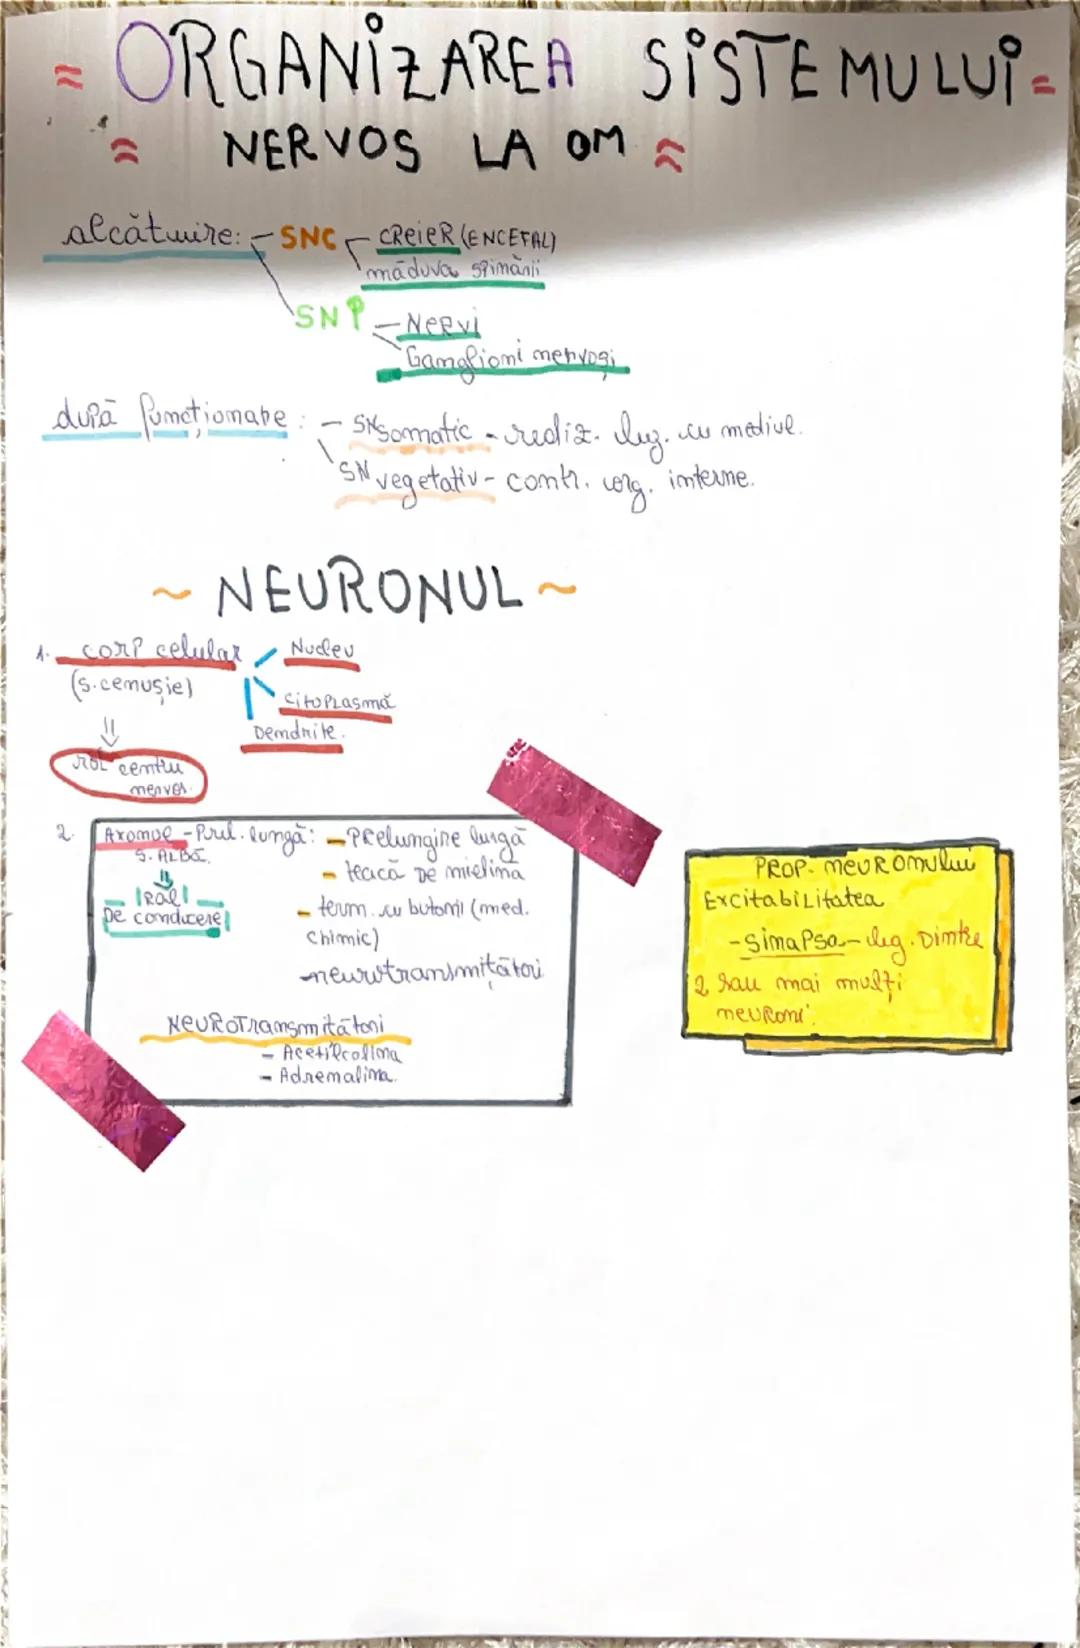 = ORGANIZAREA SISTEMULUI =
= NERVOS LA OM =
alcătuire: - SNC - CREIER (ENCEFAL)
măduva spinării
SNP - Nervi
Ganglioni nervoși
după funcționare: - SN somatic - realiz. leg. cu mediul.
SN vegetativ - contr. org. interne.
~ NEURONUL ~
1. corp celular Nucleu
(s. cenușie) Citoplasmă
Dendrite.
rol centru
nervos.
2. Axonul - Prel. lungă: - Prelungire lungă
S. ALBĂ - teacă de mielină
Rol - term. cu butoni (med.
De conducere chimic)
- neurotransmițători
NEUROTransmițători
- Acetilcolina
- Adrenalina.
PROP. neuronului
Excitabilitatea
- Sinapsa - leg. Dintre
2 sau mai mulți
neuroni.